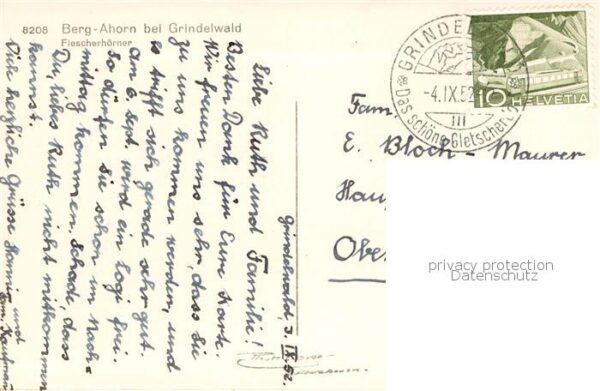 8208 Berg-Ahorn bei Grindelwald
Fiescherhörner
Grindelwald, 3. IX. 52.
Liebe Ruth und Familie!
Besten Dank für Eure Karte.
Wir freuen uns sehr, dass Sie
zu uns kommen werden, und
es trifft sich gerade sehr gut.
Am 6. Sept. wird ein Logi frei.
So dürfen Sie schon im Nach-
mittag kommen. Schade, dass
Du, liebes Ruth nicht mitkommen
kannst.
Viele herzliche Grüsse Hanni und
Fam. Kaufmann
GRINDELW
-4.IX.52
Das schöne Gletscherd
10 HELVETIA
Fam.
E. Bloch - Maurer
Hau
Obe
privacy protection
Datenschutz